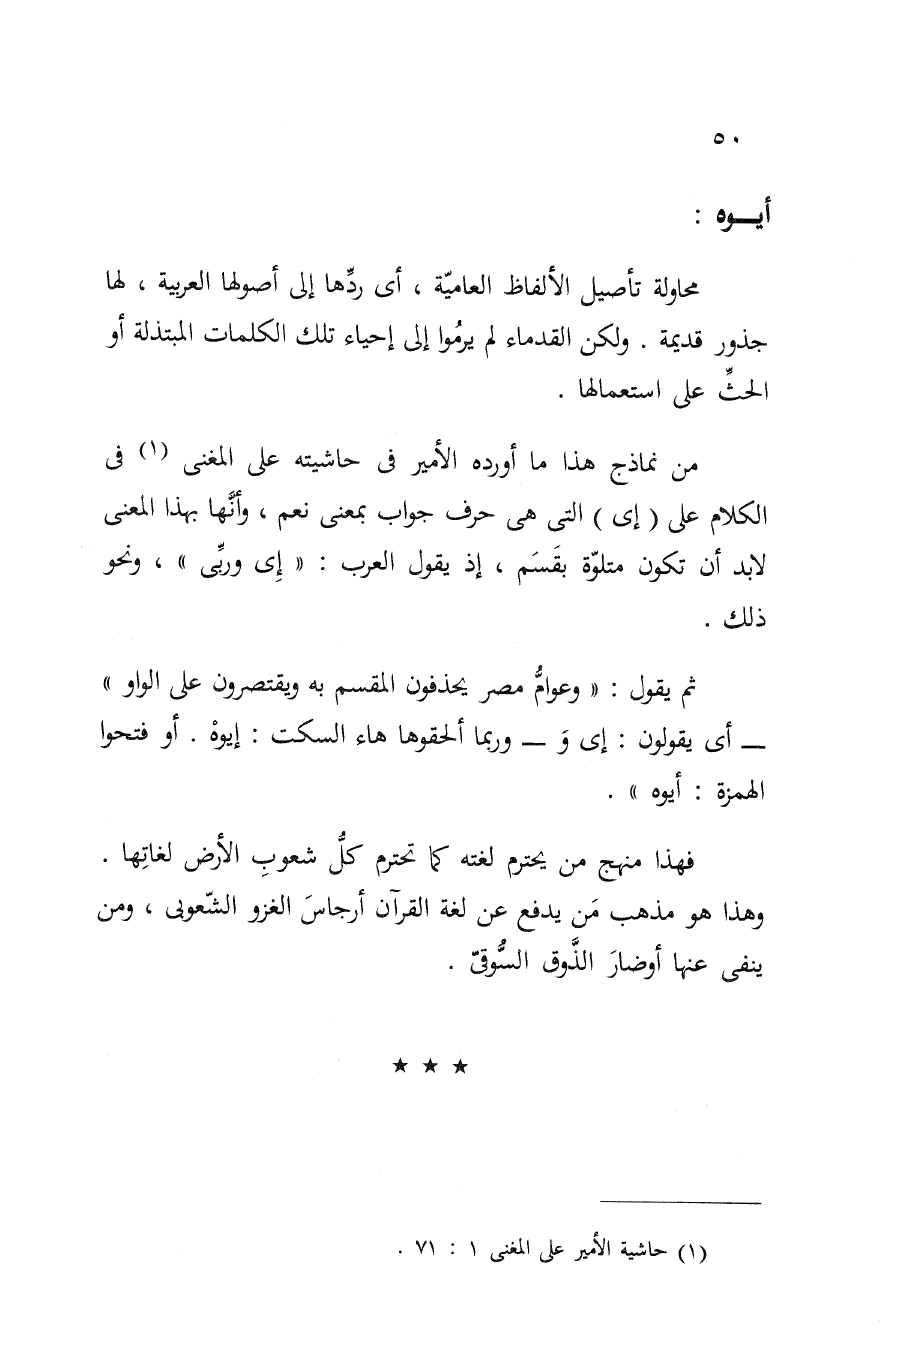 ٥٠
أيـــوه :
محاولة تأصيل الألفاظ العاميّة ، أى ردِّها إلى أصولها العربية ، لها
جذور قديمة . ولكن القدماء لم يرمُوا إلى إحياء تلك الكلمات المبتذلة أو
الحثِّ على استعمالها .
من نماذج هذا ما أورده الأمير فى حاشيته على المغنى (١) فى
الكلام على ( إى ) التى هى حرف جواب بمعنى نعم ، وأنَّها بهذا المعنى
لابد أن تكون متلوّة بقَسَم ، إذ يقول العرب : « إِى وربِّى » ، ونحو
ذلك .
ثم يقول : « وعوامُّ مصر يحذفون المقسم به ويقتصرون على الواو »
— أى يقولون : إى وَ — وربما ألحقوها هاء السكت : إيوهْ . أو فتحوا
الهمزة : أيوه » .
فهذا منهج من يحترم لغته كما تحترم كلُّ شعوبِ الأرض لغاتِها .
وهذا هو مذهب مَن يدفع عن لغة القرآن أرجاسَ الغزو الشّعوبى ، ومن
ينفى عنها أوضارَ الذَّوق السُّوقىّ .
★ ★ ★
(١) حاشية الأمير على المغنى ١ : ٧١ .